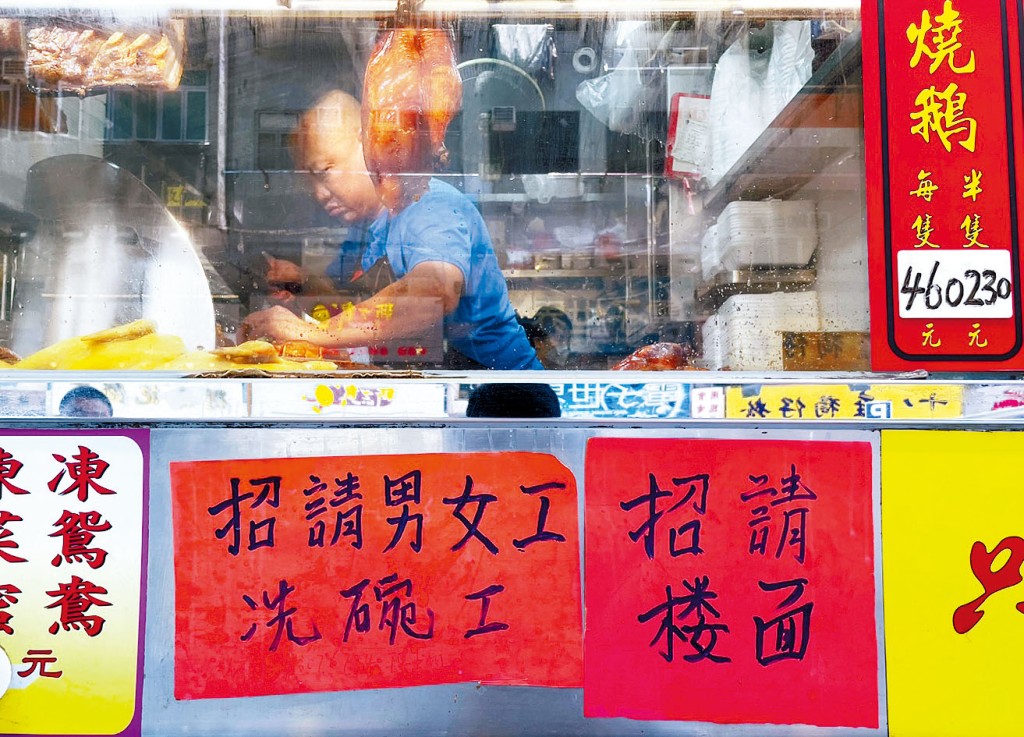 燒鵝
每隻
半隻
460
230
元
元
凍鴛鴦
元
招請男女工
洗碗工
招請
楼面
只